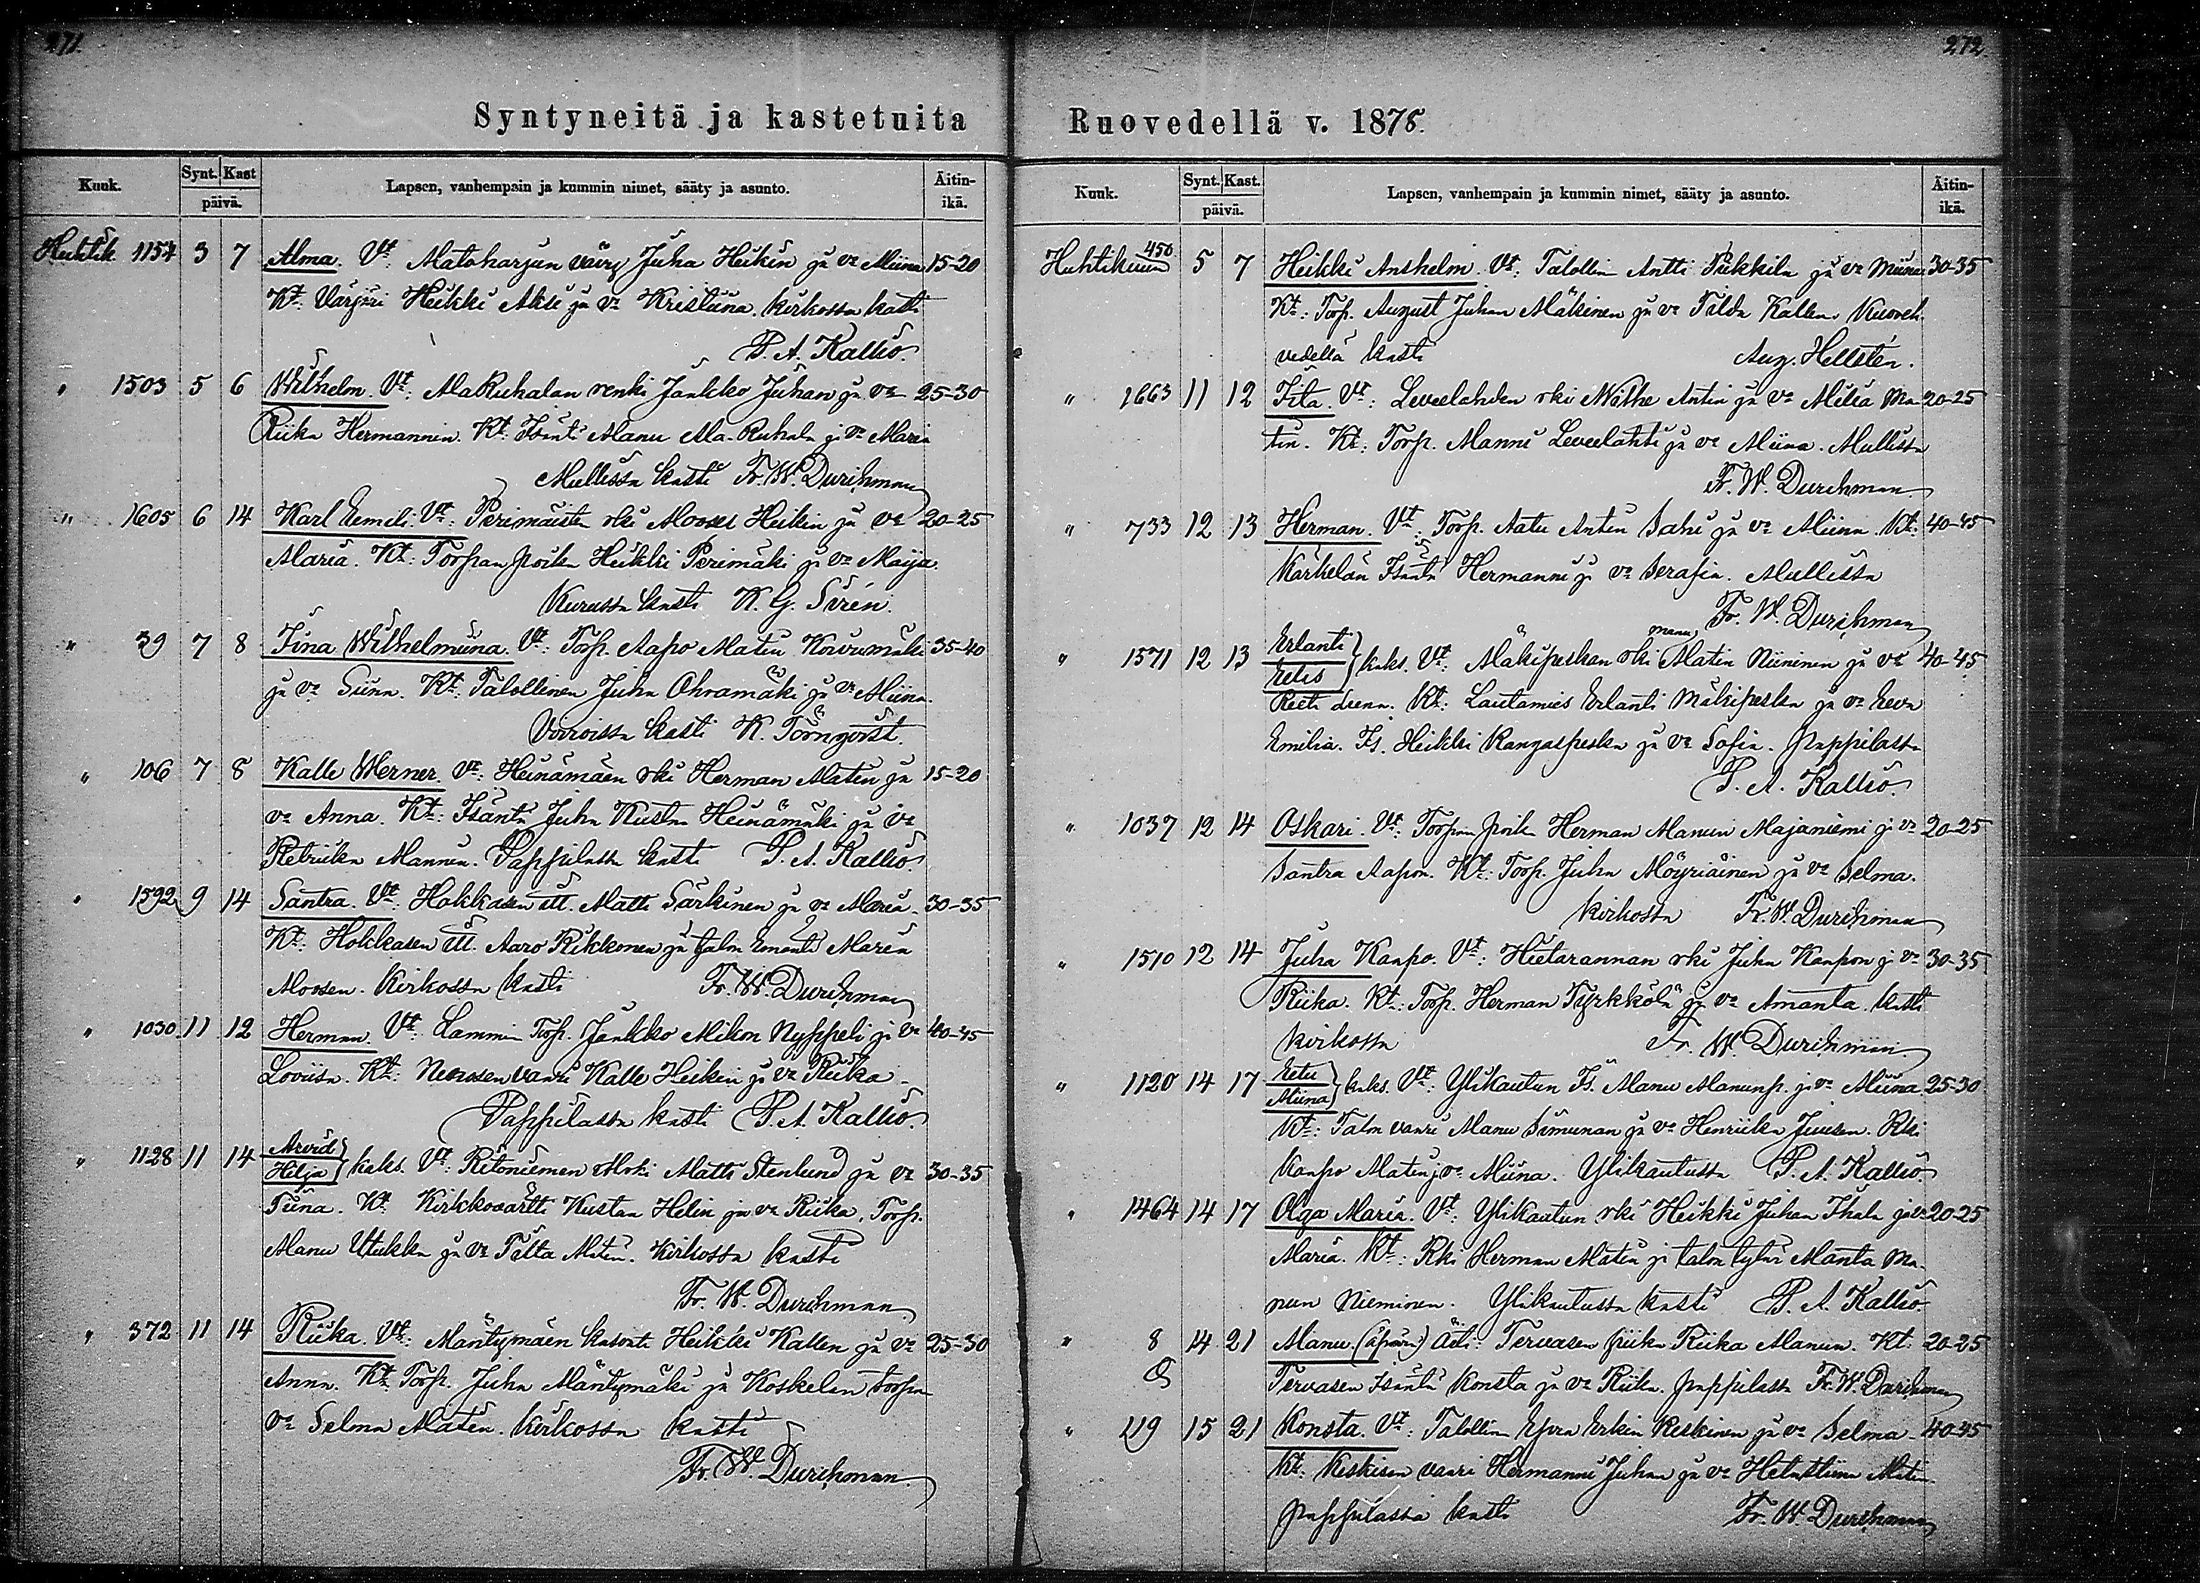 271.
Syntyneitä ja kastetuita
Kuuk.
Synt. Kast
päivä.
Lapsen, vanhempain ja kummin nimet, sääty ja asunto.
Äitin-
ikä.
Huhtik 1154 3 7 Alma. Vt: Matoharjun vävy Juha Heikin ja vo Miina 15-20
Kt. Heikki ja vo Kristiina. kirkossa kasti
P. A. Kallio.
" 1503 5 6 Wilhelm. Vt: AlaRuhalan renki Jaakko Juhan ja vo 25-30
Riika Hermannin. Kt: Isäntä Manu Ala-Ruhala j. vo Maria
Mullissa kasti Fr. W. Durchman
" 1605 6 14 Karl Eemeli. Vt: Perimäisten rki Mooses Heikin ja vo 20-25
Maria. Kt: Torpan poika Heikki Perimäki ja vo Maija.
Kurussa kasti K. G. Sirén.
" 39 7 8 Iina Wilhelmiina. Vt: Torp. Aapo Matin Koivumäki 35-40
ja vo Siina. Kt: Talollinen Juha Ohramäki ja vo Miina.
Virroissa kasti K. Törnqvist.
" 106 7 8 Kalle Werner. Vt: Heinämäen rki Herman Matin ja 15-20
vo Anna. Kt: Isäntä Juha Kustaa Heinämäki ja vo
Retriika Mannin. Pappilassa kasti P. A. Kallio
" 1592 9 14 Santra. Vt: Hokkasen itl. Matti Särkinen ja vo Maria 30-35
Kt: Hokkasen itl. Aaro Rikkonen ja talon emäntä Maria
Moosen. Kirkossa kasti Fr. W. Durchman
" 1030 11 12 Herman. Vt: Lammin Torp. Jaakko Mikon Nyppeli j. vo 40-45
Loviisa. Kt: vaari Kalle Heikin j. vo Riika
Pappilassa kasti P. A. Kallio.
" 1128 11 14 Arvid
Helja } kaks. Vt: Ritoniemen Matti Stenlund ja vo 30-35
Tiina. Kt Kirkkovärtti Kustaa Helin ja vo Riika, Torp.
Manu Utukka ja vo Tilta Matin. Kirkossa kasti
Fr. W. Durchman
" 372 11 14 Riika. Vt: Mäntymäen kasvati Heikki Kallen ja vo 25-30
Anna. Kt: Torp. Juha Mäntymäki ja Koskelan torpan
vo Selma Matin. Kirkossa kasti
Fr. W. Durchman
272.
Ruovedellä v. 1878.
Kuuk.
Synt. Kast.
päivä.
Lapsen, vanhempain ja kummin nimet, sääty ja asunto.
Äitin-
ikä.
Huhtikuun 450 5 7 Heikki Anshelm. Vt: Talollin Antti Pukkila ja vo Miina 30-35
Kt: Torp. August Juhan Mäkinen ja vo Tilda Kallen. Kuoreh.
vedellä kasti Aug. Hellstén.
" 1663 11 12 Fita. Vt: Leveelahden rki Antin ja vo Miia Ma- 20-25
tin. Kt: Torp. Manni Leveelahti ja vo Miina. Mullissa
Fr. W. Durchman
" 733 12 13 Herman. Vt: Torp. Aatu Antin Sahi ja vo Miina. Kt: 40-45
Kärkelän Isäntä Hermanni j. vo Serafia. Mullissa
Fr. W. Durchman
" 1571 12 13 Erlanti
Eelis } kaks. Vt: Mäkipeskan rki manu Matin Niininen ja vo 40-45
Kt: Lautamies Erlanti Mäkipeska ja vo Eeva
Emilia. Is. Heikki Kangaspeska ja vo Sofia. Pappilassa
P. A. Kallio.
" 1037 12 14 Oskari. Vt: Torpan poika Herman Manun Majaniemi j. vo 20-25
Santra Aapon. Kt: Torp. Juha Möyriäinen ja vo Selma.
Kirkossa Fr. W. Durchman
" 1510 12 14 Juha Kaapo. Vt: Hietarannan rki Juha Kaapon j. vo 30-35
Riika. Kt: Torp. Herman Tyrkkölä ja vo Amanta. kasti
kirkossa Fr. W. Durchman
" 1120 14 17 Eetu
Miina } kaks. Vt: Ylikautun Is. Manu Manunp. j. vo Miina 25-30
Kt: Talon vaari Manu Simunan ja vo Henriika Juusen. Rki
Kaapo Matin j. vo Miina. Ylikautussa P. A. Kallio
" 1464 14 17 Olga Maria. Vt: Ylikautun rki Heikki Juhan Ihala ja vo 20-25
Maria. Kt: Rki Herman Matin j. talon tytär Manta Ma-
nun Nieminen. Ylikautussa kasti P. A. Kallio
" 8 14 21 Manu (äpärä) Äiti: Tervasen piika Riika Manun. Kt: 20-25
Tervasen Isäntä Konsta ja vo Riika. pappilassa Fr. W. Durchman
" 219 15 21 Konsta. Vt: Talollin Erkin Keskinen ja vo Selma 40-45
Kt: Keskisen vaari Hermanni Juhan ja vo Helastiina Matin
pappilassa kasti Fr. W. Durchman